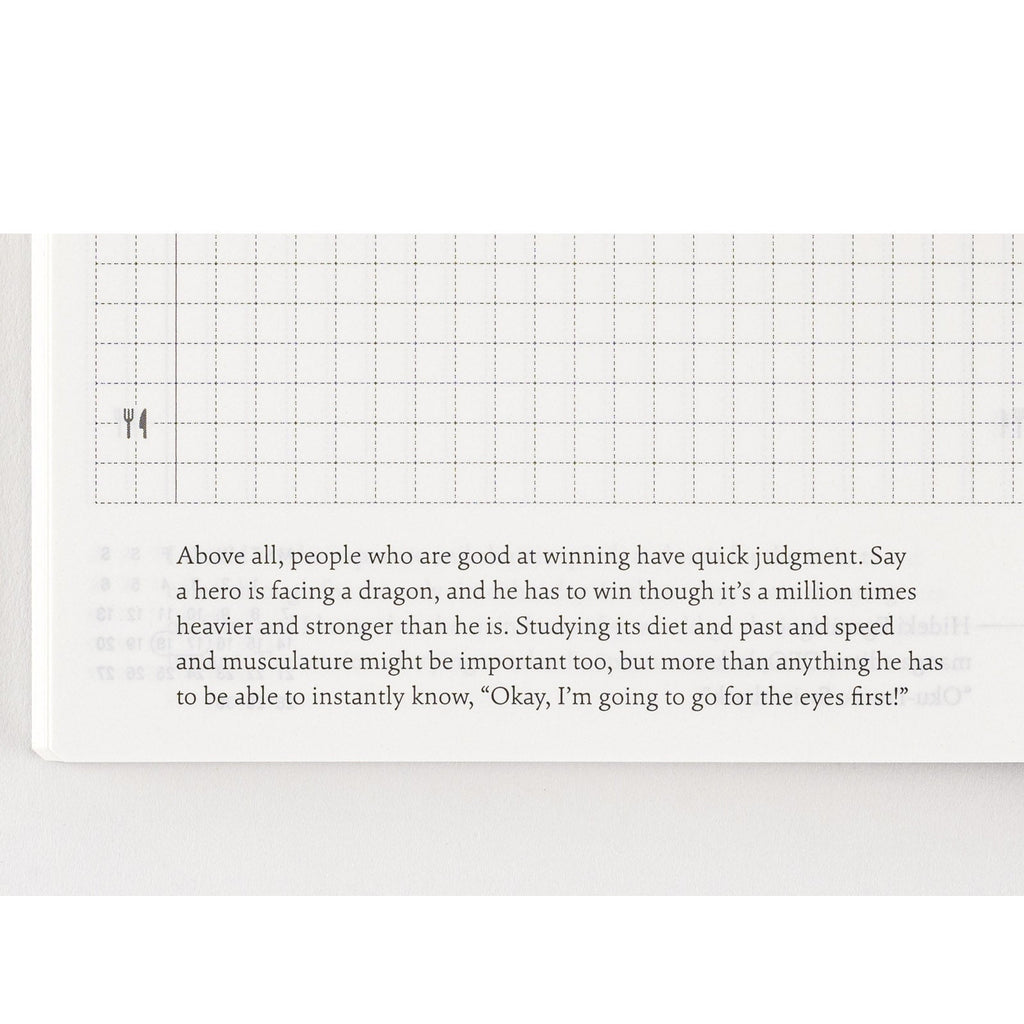 Above all, people who are good at winning have quick judgment. Say
a hero is facing a dragon, and he has to win though it’s a million times
heavier and stronger than he is. Studying its diet and past and speed
and musculature might be important too, but more than anything he has
to be able to instantly know, “Okay, I’m going to go for the eyes first!”